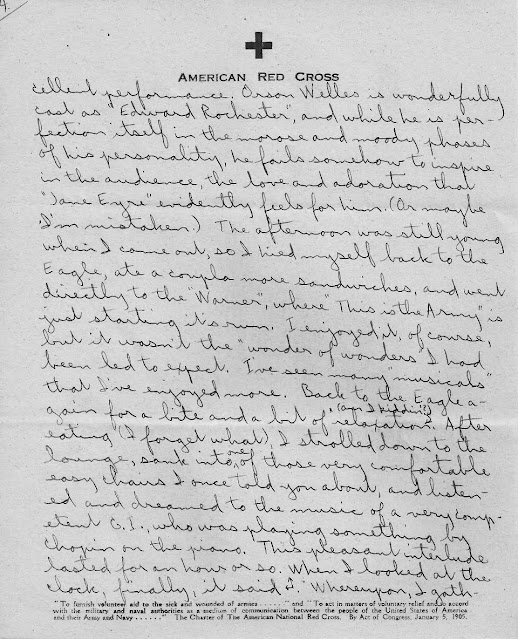 4.
AMERICAN RED CROSS
cellent performance. Orson Welles is wonderfully
cast as "Edward Rochester", and while he is per-
fection itself in the morose and moody phases
of his personality, he fails somehow to inspire
in the audience, the love and adoration that
"Jane Eyre" evidently feels for him. (Or maybe
I'm mistaken.) The afternoon was still young
when I came out, so I hied myself back to the
Eagle, ate a coupla more sandwiches, and went
directly to the "Warner", where "This is the Army" is
just starting it's run. I enjoyed it, of course,
but it wasn't the "wonder of wonders" I had
been led to expect. I've seen many "musicals"
that I've enjoyed more. Back to the Eagle a-
gain for a bite and a bit of relaxation. (am I kiddin'?) After
eating (I forget what) I strolled down to the
lounge, sank into one of those very comfortable
easy chairs I once told you about, and listen-
ed and dreamed to the music of a very comp-
etent G.I., who was playing something by
Chopin on the piano. This pleasant interlude
lasted for an hour or so. When I looked at the
clock, finally, it said Whereupon, I gath-
"To furnish volunteer aid to the sick and wounded of armies . . . . . ." and "To act in matters of voluntary relief and in accord
with the military and naval authorities as a medium of communication between the people of the United States of America
and their Army and Navy . . . . . ." The Charter of The American National Red Cross. By Act of Congress, January 5, 1905.